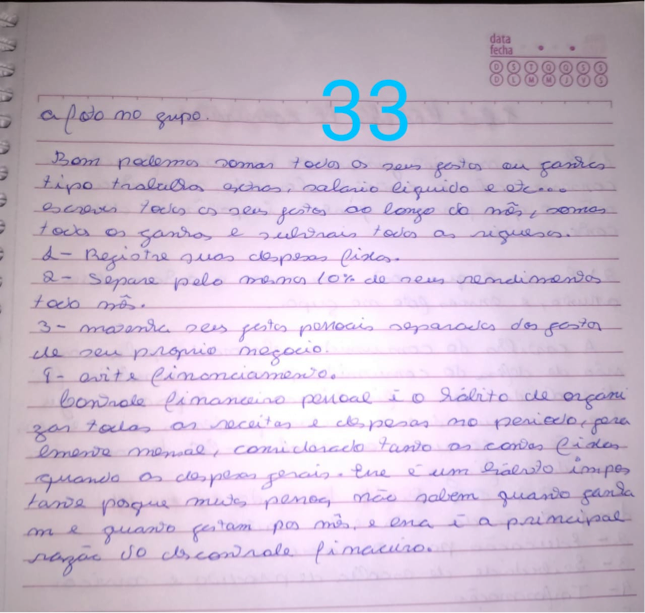 data
fecha
D S T Q Q S S
D L M M J V S
33
a foto no grupo.
Bom podemos somar todos os seus gastos ou ganhos
tipo trabalhos extras, salario liquido e etc...
escreva todos os seus gastos ao longo do mês, somas
todos os ganhos e subtrais todos as riquesas.
1- Registre suas despesas fixas.
2- Separe pelo menos 10% de seus rendimentos
todo mês.
3- mantenha seus gastos pessoais separados dos gastos
de seu próprio negocio.
4- evite financiamento.
Controle financeiro pessoal é o hábito de organi
zar todas as receitas e despesas no periodo, gera
lmente mensal, considerado tanto as contas fixas
quando as despesas gerais. Esse é um hábito impor
tante porque muitas pessoas não sabem quanto ganha
m e quanto gastam por mês, e essa é a principal
razão do descontrole financeiro.